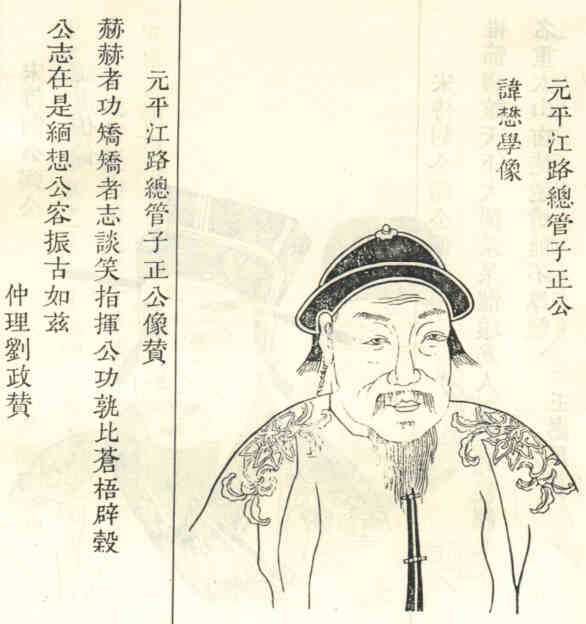 元平江路總管子正公
諱懋學像
元平江路總管子正公像贊
赫赫者功矯矯者志談笑指揮公功孰比蒼梧辟穀
公志在是緬想公容振古如茲
仲理劉政贊